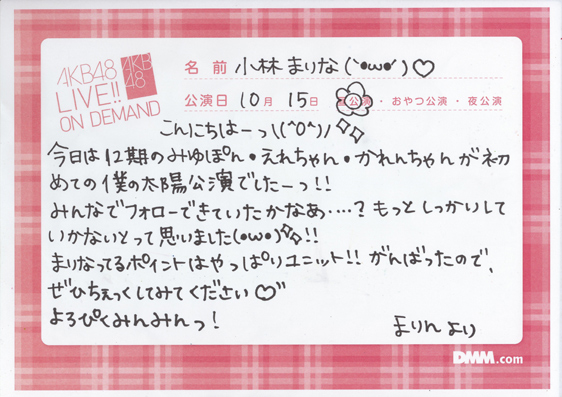 AKB48
LIVE!!
ON DEMAND
AKB
48
名前 小林まりな(`•ω•´)♡
公演日 10月 15日 昼公演・おやつ公演・夜公演
こんにちはーっ\(^O^)/
今日は12期のみゆぽん・えれちゃん・かれんちゃんが初
めての僕の太陽公演でしたーっ!!
みんなでフォローできていたかなぁ‥‥?もっとしっかりして
いかないとって思いました(•ω•)!!
まりなってるポイントはやっぱりユニット!!がんばったので、
ぜひちぇっくしてみてください♡"
よろぴくみんみんっ!
まりんより
DMM.com